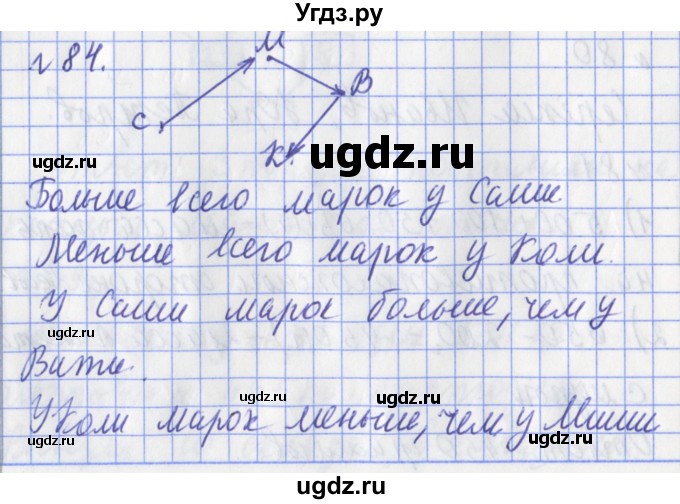 Угдз.ру
№84.
М
В
С
К
ugdz.ru
ugdz.ru
Больше всего марок у Саши
Меньше всего марок у Коли.
ugdz.ru
У Саши марок больше, чем у
ugdz.ru
Вити.
ugdz.ru
ugdz.ru
У Коли марок меньше, чем у Маши
ugdz.ru